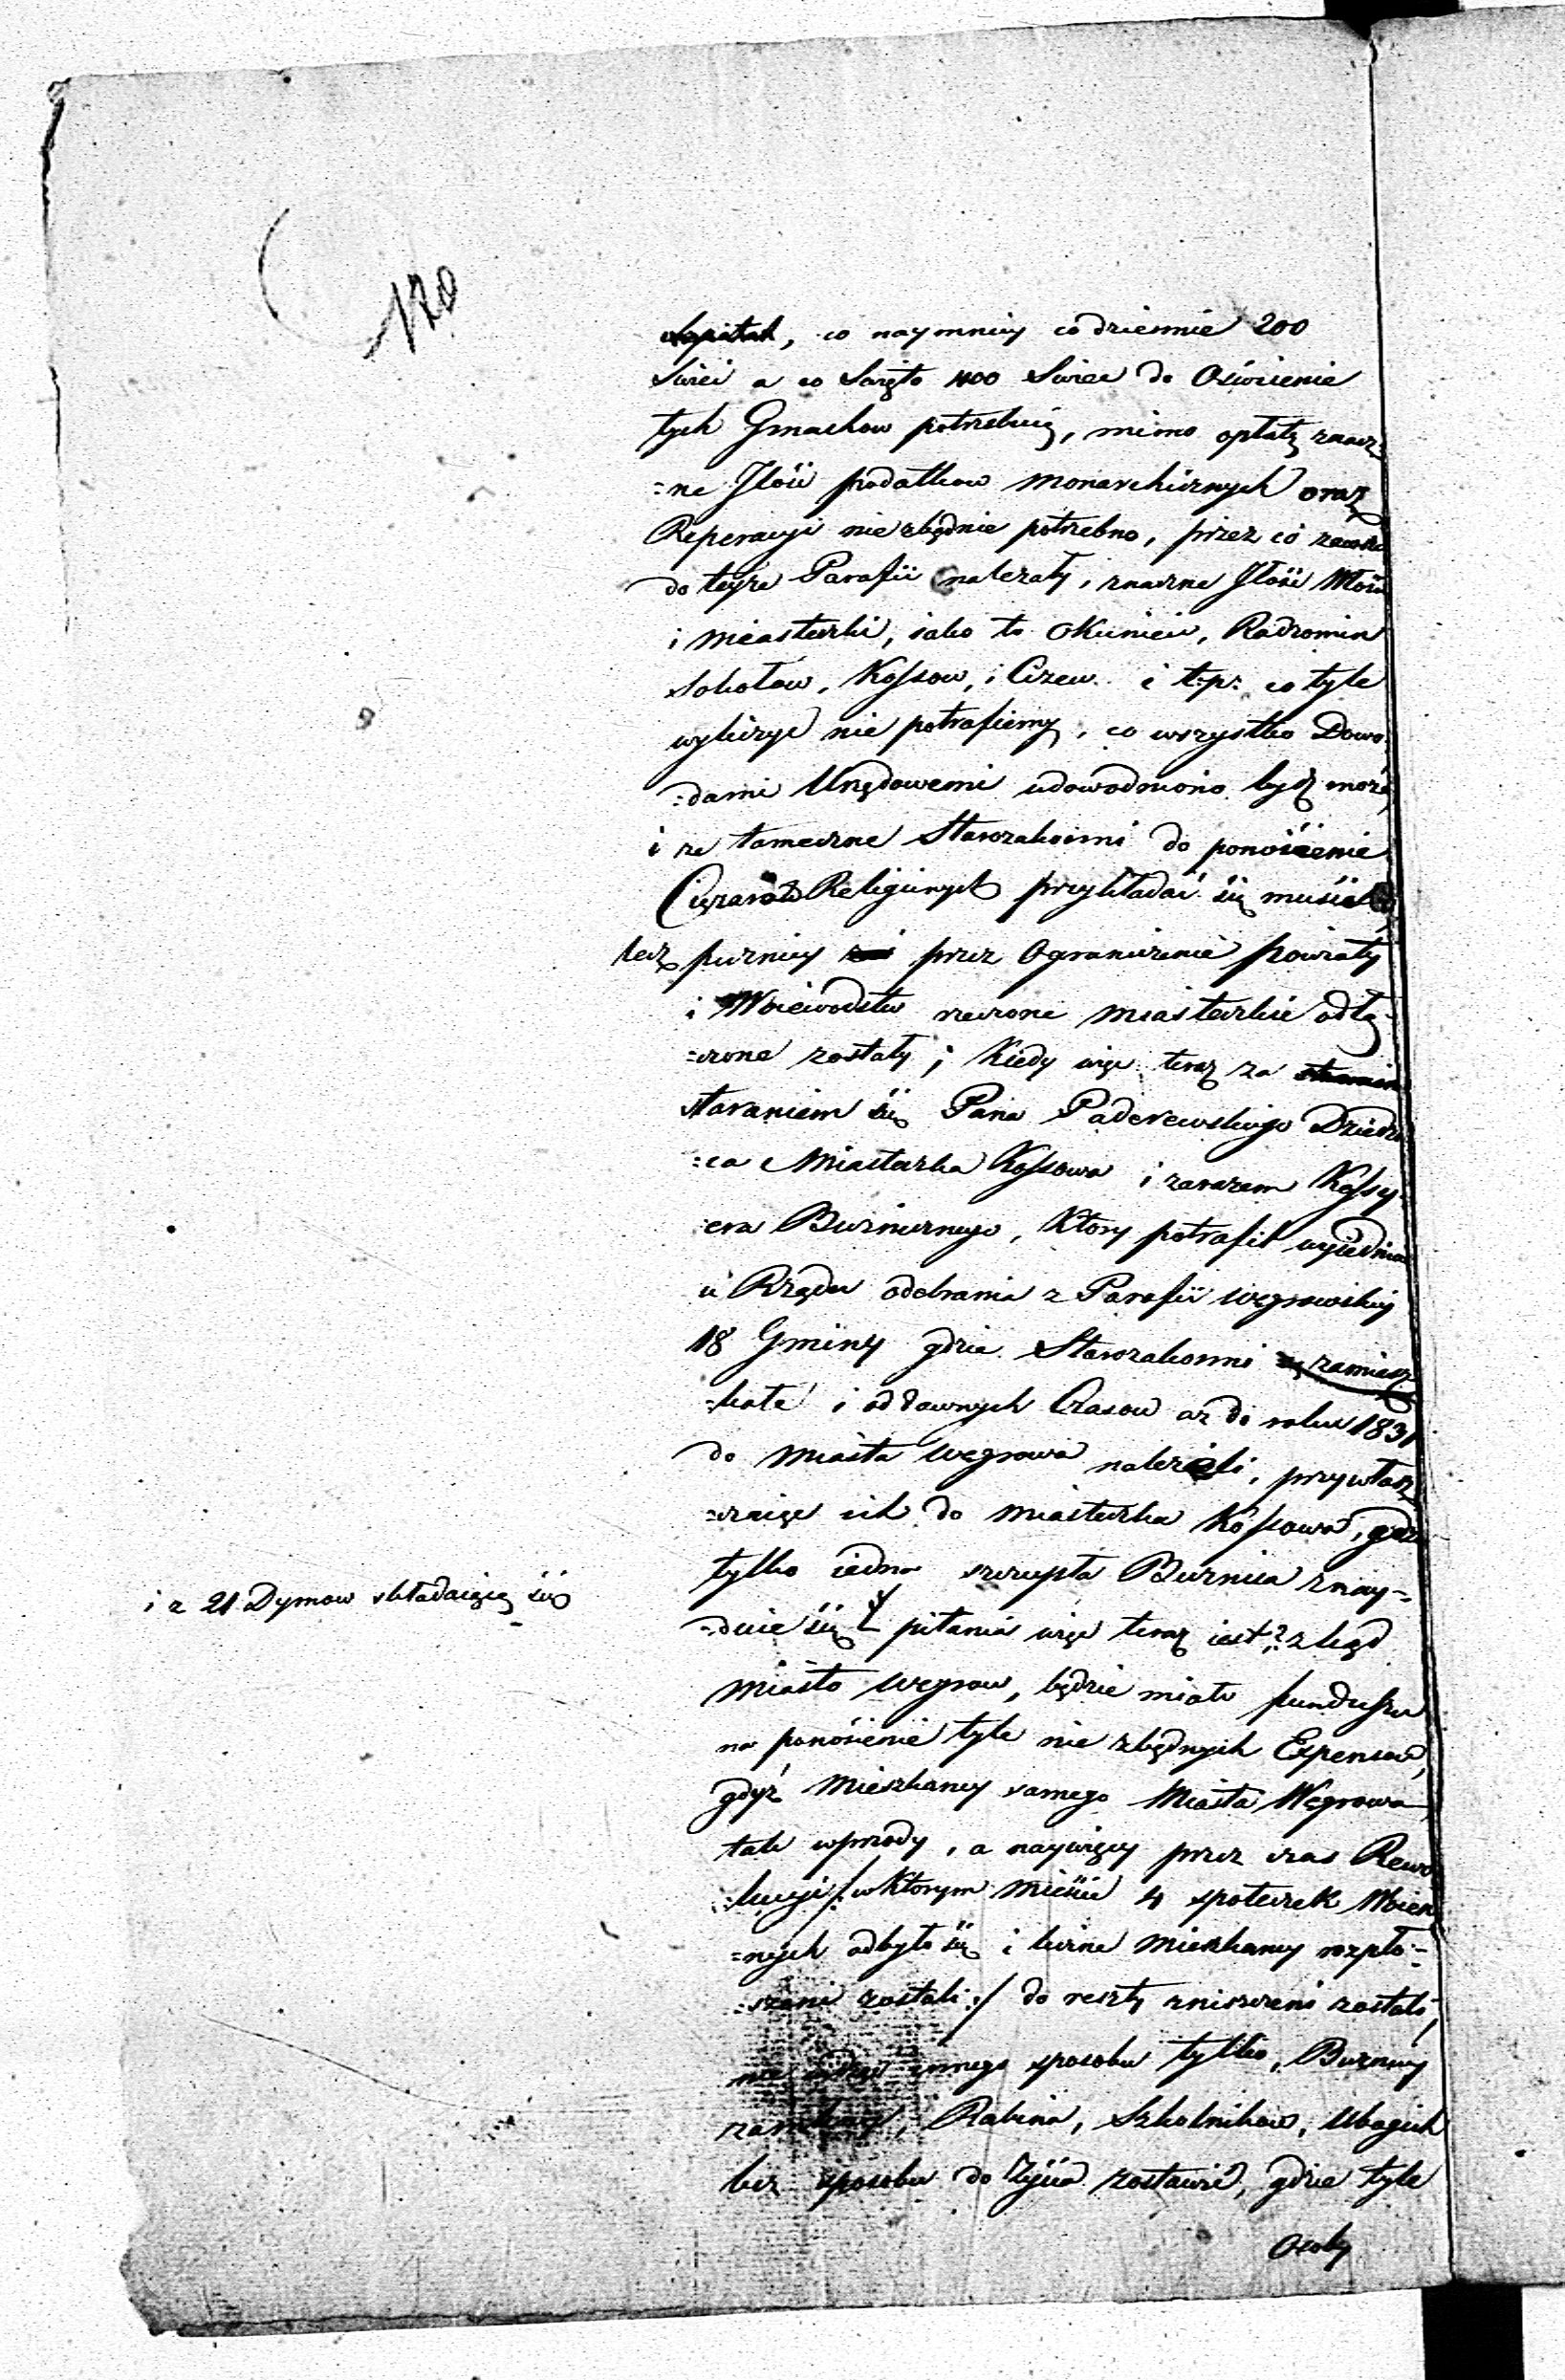 120
Szpital, co naymniey codziennie 200
Swiec a co Święto 400 Swiec do Oswiecenie
tych Gmachow potrzebuią, mimo opłatę znacz
=ne Jlości podatkow Monarchicznych oraz
Reperacyi nie zbędnie potrzebno, przez co zawsze
do teyże Parafii należały, znaczne Jlości Włości
i Miasteczki, iako to Okuniew, Radzomin
Sokołow, Kossow, i Czew i t:p: co tyle
wyliczyć nie potrafiemy, co wszystko Dowo
=dami Urzędowemi udowodniono bydz może,
i ze tameczne Starozakonni do ponoszenie
Ciężarów Religiinych przykładać się musieli
lecz puzniey przez Ograniczenie powiaty
i Woiewodztw rzeczone Miasteczkie odłą-
=czone zostały; Kiedy więc teraz za
staraniem się Pana Paderewskiego Dziedzi
=ca Miasteczka Kossowa i zarazem Kassy-
=era Buznicznego, Ktory potrafił wyiednać
u Rządu odebrania z Parafii Węgrowskiey
18 Gminy gdzie Starozakonni zamiesz
=kałe i od dawnych Czasow az do roku 1831
do Miasta Węgrowa należeli, przywłasz
=czaiąc ich do Miasteczka Kossowa, gdzie
tylko iedna szczupła Buznica znay-
=duie się pitania więc teraz iest? zkąd
i z 21 Dymow składaiącą się
Miasto Węgrow, będzie miało fundusze
na ponoszenie tyle nie zbędnych Expensow,
gdyż Mieszkancy samego Miasta Węgrowa
tak wprzody, a naywięcy przez czas Rewo
=lucyi /: w Ktorym Mieście 4 potyczek Woien
=nych odbyło się i liczne Mieszkancy rozpło-
=szeni zostali :/ do reszty zniszczeni zostali,
nie innego sposobu tylko, Buznicy
Rabina, Szkolnikow, Ubogich
bez sposobu do życia zostawić, gdzie tyle
Osoby